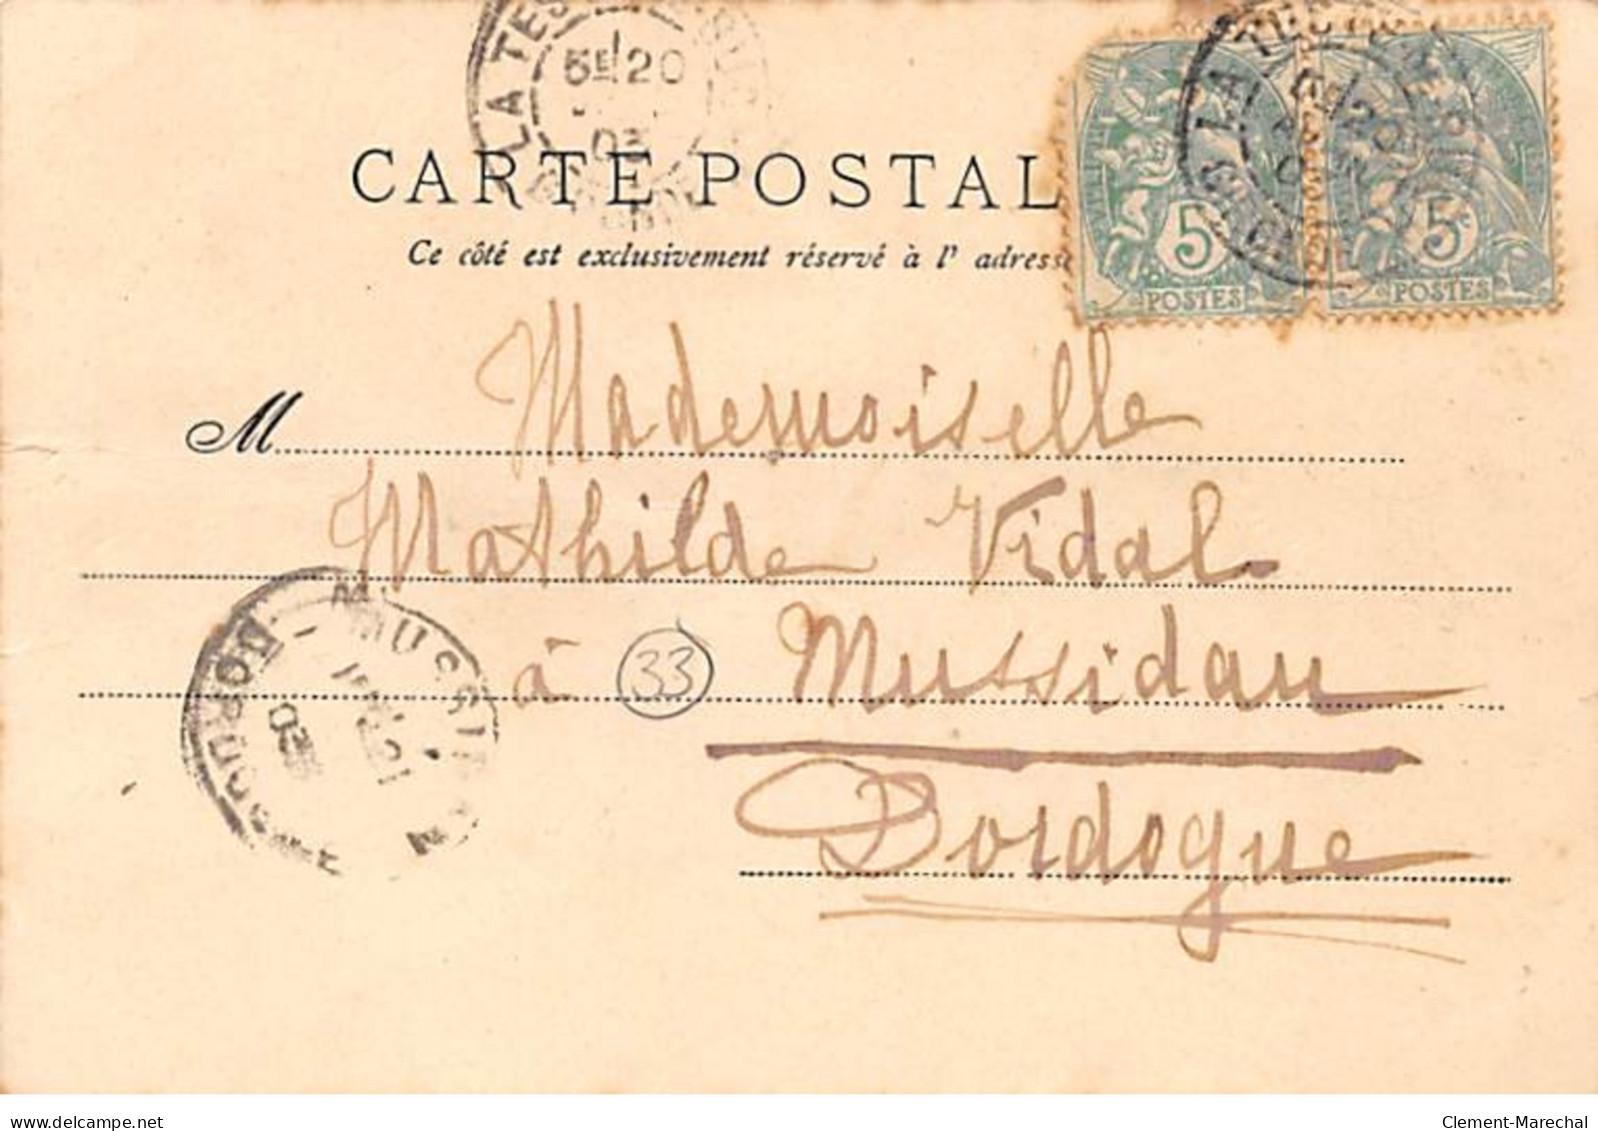 LA TES
5E 20
03
CARTE POSTAL
Ce côté est exclusivement réservé à l' adresse
5c
POSTES
5c
POSTES
LA TEST
M
Mademoiselle
Mathilde Vidal
à 33 Mussidan
Dordogne
MUSSIDAN
21
03
DORDOGNE
www.delcampe.net
Clement-Marechal